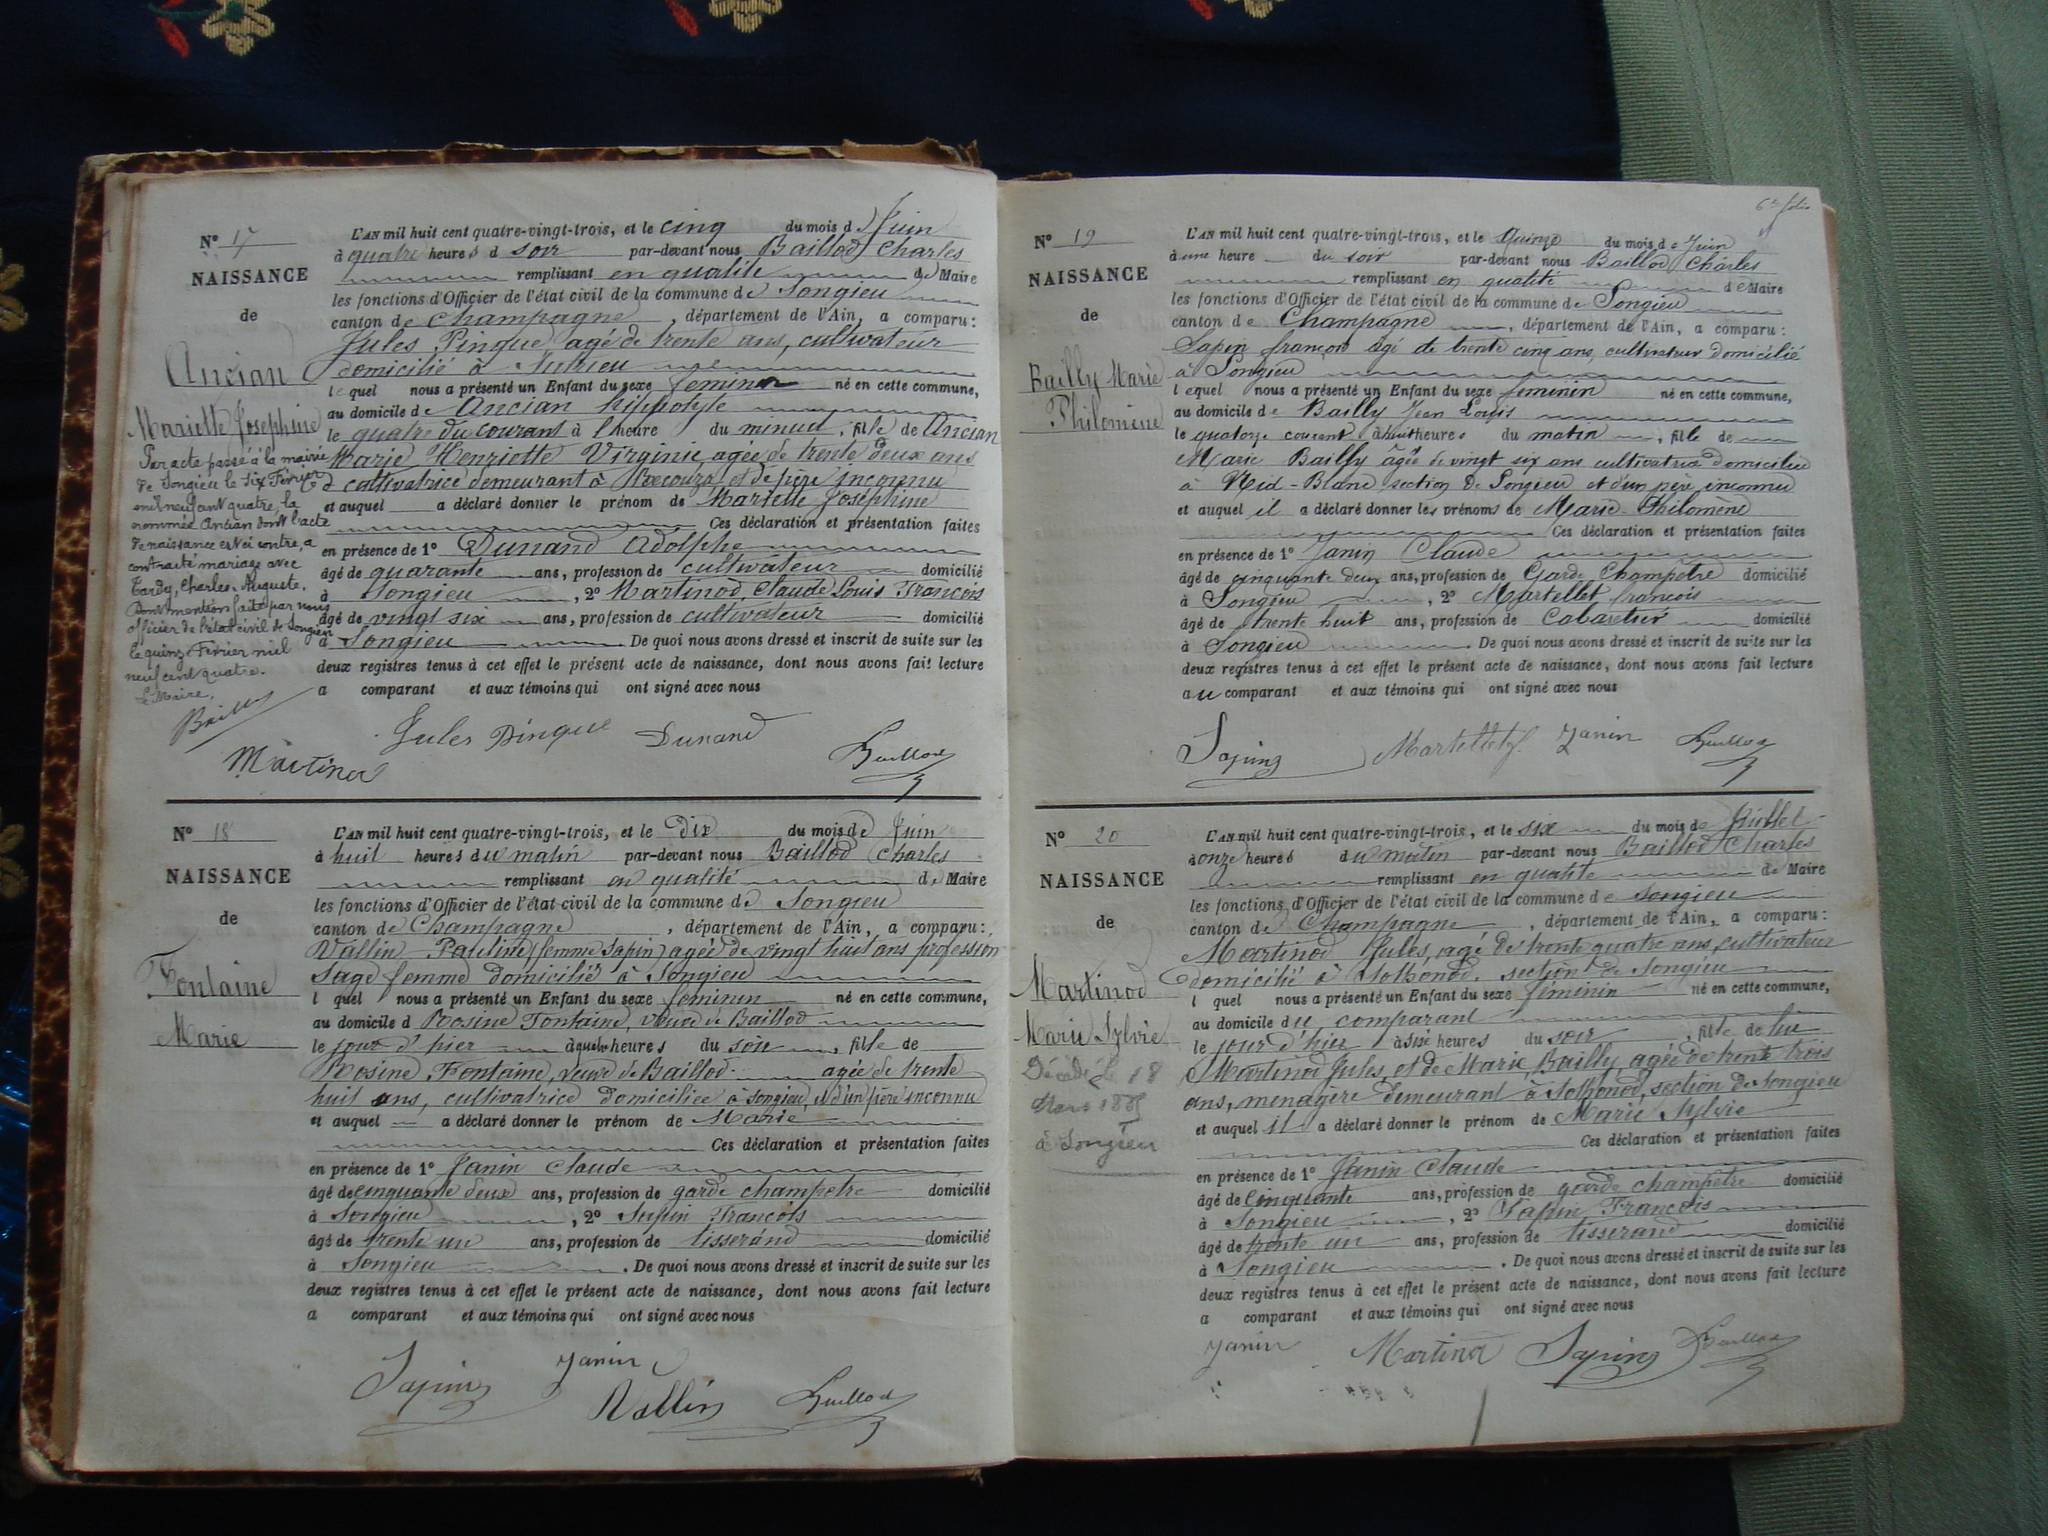 N° 17
NAISSANCE
de
Ancian
Mariette Joséphine
Par acte passé à la mairie
de Songieu le six Février
mil neuf cent quatre, la
nommée Ancian dont l'acte
de naissance est ci contre, a
contracté mariage avec
Tardy, Charles, Auguste.
Dont mention faite par nous
officier de l'état civil de Songieu
le quinze Février mil
neuf cent quatre.
Le Maire,
L'AN mil huit cent quatre-vingt-trois, et le cinq du mois d Juin
à quatre heures d soir par-devant nous Baillod Charles
remplissant en qualité de Maire
les fonctions d'Officier de l'état civil de la commune de Songieu
canton de Champagne, département de l'Ain, a comparu :
Jules Pinque agé de trente ans, cultivateur
domicilié à
lequel nous a présenté un Enfant du sexe feminin né en cette commune,
au domicile de Ancian hippolyte
le quatre du courant à 1 heure du minuit, fille de Ancian
Marie Henriette Virginie agée de trente deux ans
cultivatrice demeurant à et de père inconnu
et auquel a déclaré donner le prénom de Mariette Joséphine
Ces déclaration et présentation faites
en présence de 1° Dunand Adolphe
âgé de quarante ans, profession de cultivateur domicilié
à Songieu, 2° Martinod, Claude Louis François
âgé de vingt six ans, profession de cultivateur domicilié
à Songieu. De quoi nous avons dressé et inscrit de suite sur les
deux registres tenus à cet effet le présent acte de naissance, dont nous avons fait lecture
a comparant et aux témoins qui ont signé avec nous
Jules Pinque Dunand
Martinod Baillod
N° 18
NAISSANCE
de
Fontaine
Marie
L'AN mil huit cent quatre-vingt-trois, et le Dix du mois de Juin
à huit heures du matin par-devant nous Baillod Charles
remplissant en qualité de Maire
les fonctions d'Officier de l'état civil de la commune de Songieu
canton de Champagne, département de l'Ain, a comparu :
Vallin Pauline (femme Sapin) agée de vingt huit ans profession
Sage femme domiciliée à Songieu
l quel nous a présenté un Enfant du sexe feminin né en cette commune,
au domicile d Rosine Fontaine, veuve de Baillod
le jour d'hier à heures du soir, fille de
Rosine Fontaine, veuve de Baillod agée de trente
huit ans, cultivatrice domiciliée à Songieu, et d'un père inconnu
et auquel a déclaré donner le prénom de Marie
Ces déclaration et présentation faites
en présence de 1° Janin Claude
âgé de cinquante deux ans, profession de garde champetre domicilié
à Songieu, 2° Sapin François
âgé de trente un ans, profession de tisserand domicilié
à Songieu. De quoi nous avons dressé et inscrit de suite sur les
deux registres tenus à cet effet le présent acte de naissance, dont nous avons fait lecture
a comparant et aux témoins qui ont signé avec nous
Sapin Janin
Vallin Baillod
6e folio
N° 19
NAISSANCE
de
Bailly Marie
Philomène
L'AN mil huit cent quatre-vingt-trois, et le Quinze du mois de Juin
à une heure du soir par-devant nous Baillod Charles
remplissant en qualité de Maire
les fonctions d'Officier de l'état civil de la commune de Songieu
canton de Champagne, département de l'Ain, a comparu :
Sapin françois agé de trente cinq ans, cultivateur domicilié
à Songieu
lequel nous a présenté un Enfant du sexe feminin né en cette commune,
au domicile de Bailly Jean Louis
le quatorze courant à huit heures du matin, fille de
Marie Bailly âgée de vingt six ans cultivatrice domiciliée
à Nid-Blanc section de Songieu et d'un père inconnu
et auquel il a déclaré donner les prénoms de Marie-Philomène
Ces déclaration et présentation faites
en présence de 1° Janin Claude
âgé de cinquante deux ans, profession de Garde Champêtre domicilié
à Songieu, 2° Martellet françois
âgé de trente huit ans, profession de Cabaretier domicilié
à Songieu. De quoi nous avons dressé et inscrit de suite sur les
deux registres tenus à cet effet le présent acte de naissance, dont nous avons fait lecture
au comparant et aux témoins qui ont signé avec nous
Sapin Martellet f. Janin Baillod
N° 20
NAISSANCE
de
Martinod
Marie Sylvie
Décédée le 18
Mars
à Songieu
L'AN mil huit cent quatre-vingt-trois, et le six du mois de Juillet
à onze heures du matin par-devant nous Baillod Charles
remplissant en qualité de Maire
les fonctions d'Officier de l'état civil de la commune de Songieu
canton de Champagne, département de l'Ain, a comparu :
Martinod Jules, agé de trente quatre ans, cultivateur
domicilié à Sothonod, section de Songieu
l quel nous a présenté un Enfant du sexe féminin né en cette commune,
au domicile du comparant
le jour d'hier à six heures du soir, fille de lui
Martinod Jules, et de Marie Bailly, agée de trente trois
ans, menagère demeurant à Sothonod, section de Songieu
et auquel il a déclaré donner le prénom de Marie Sylvie
Ces déclaration et présentation faites
en présence de 1° Janin Claude
âgé de Cinquante ans, profession de garde champetre domicilié
à Songieu, 2° Sapin François
âgé de trente un ans, profession de tisserand domicilié
à Songieu. De quoi nous avons dressé et inscrit de suite sur les
deux registres tenus à cet effet le présent acte de naissance, dont nous avons fait lecture
a comparant et aux témoins qui ont signé avec nous
Janin Martinod Sapin Baillod